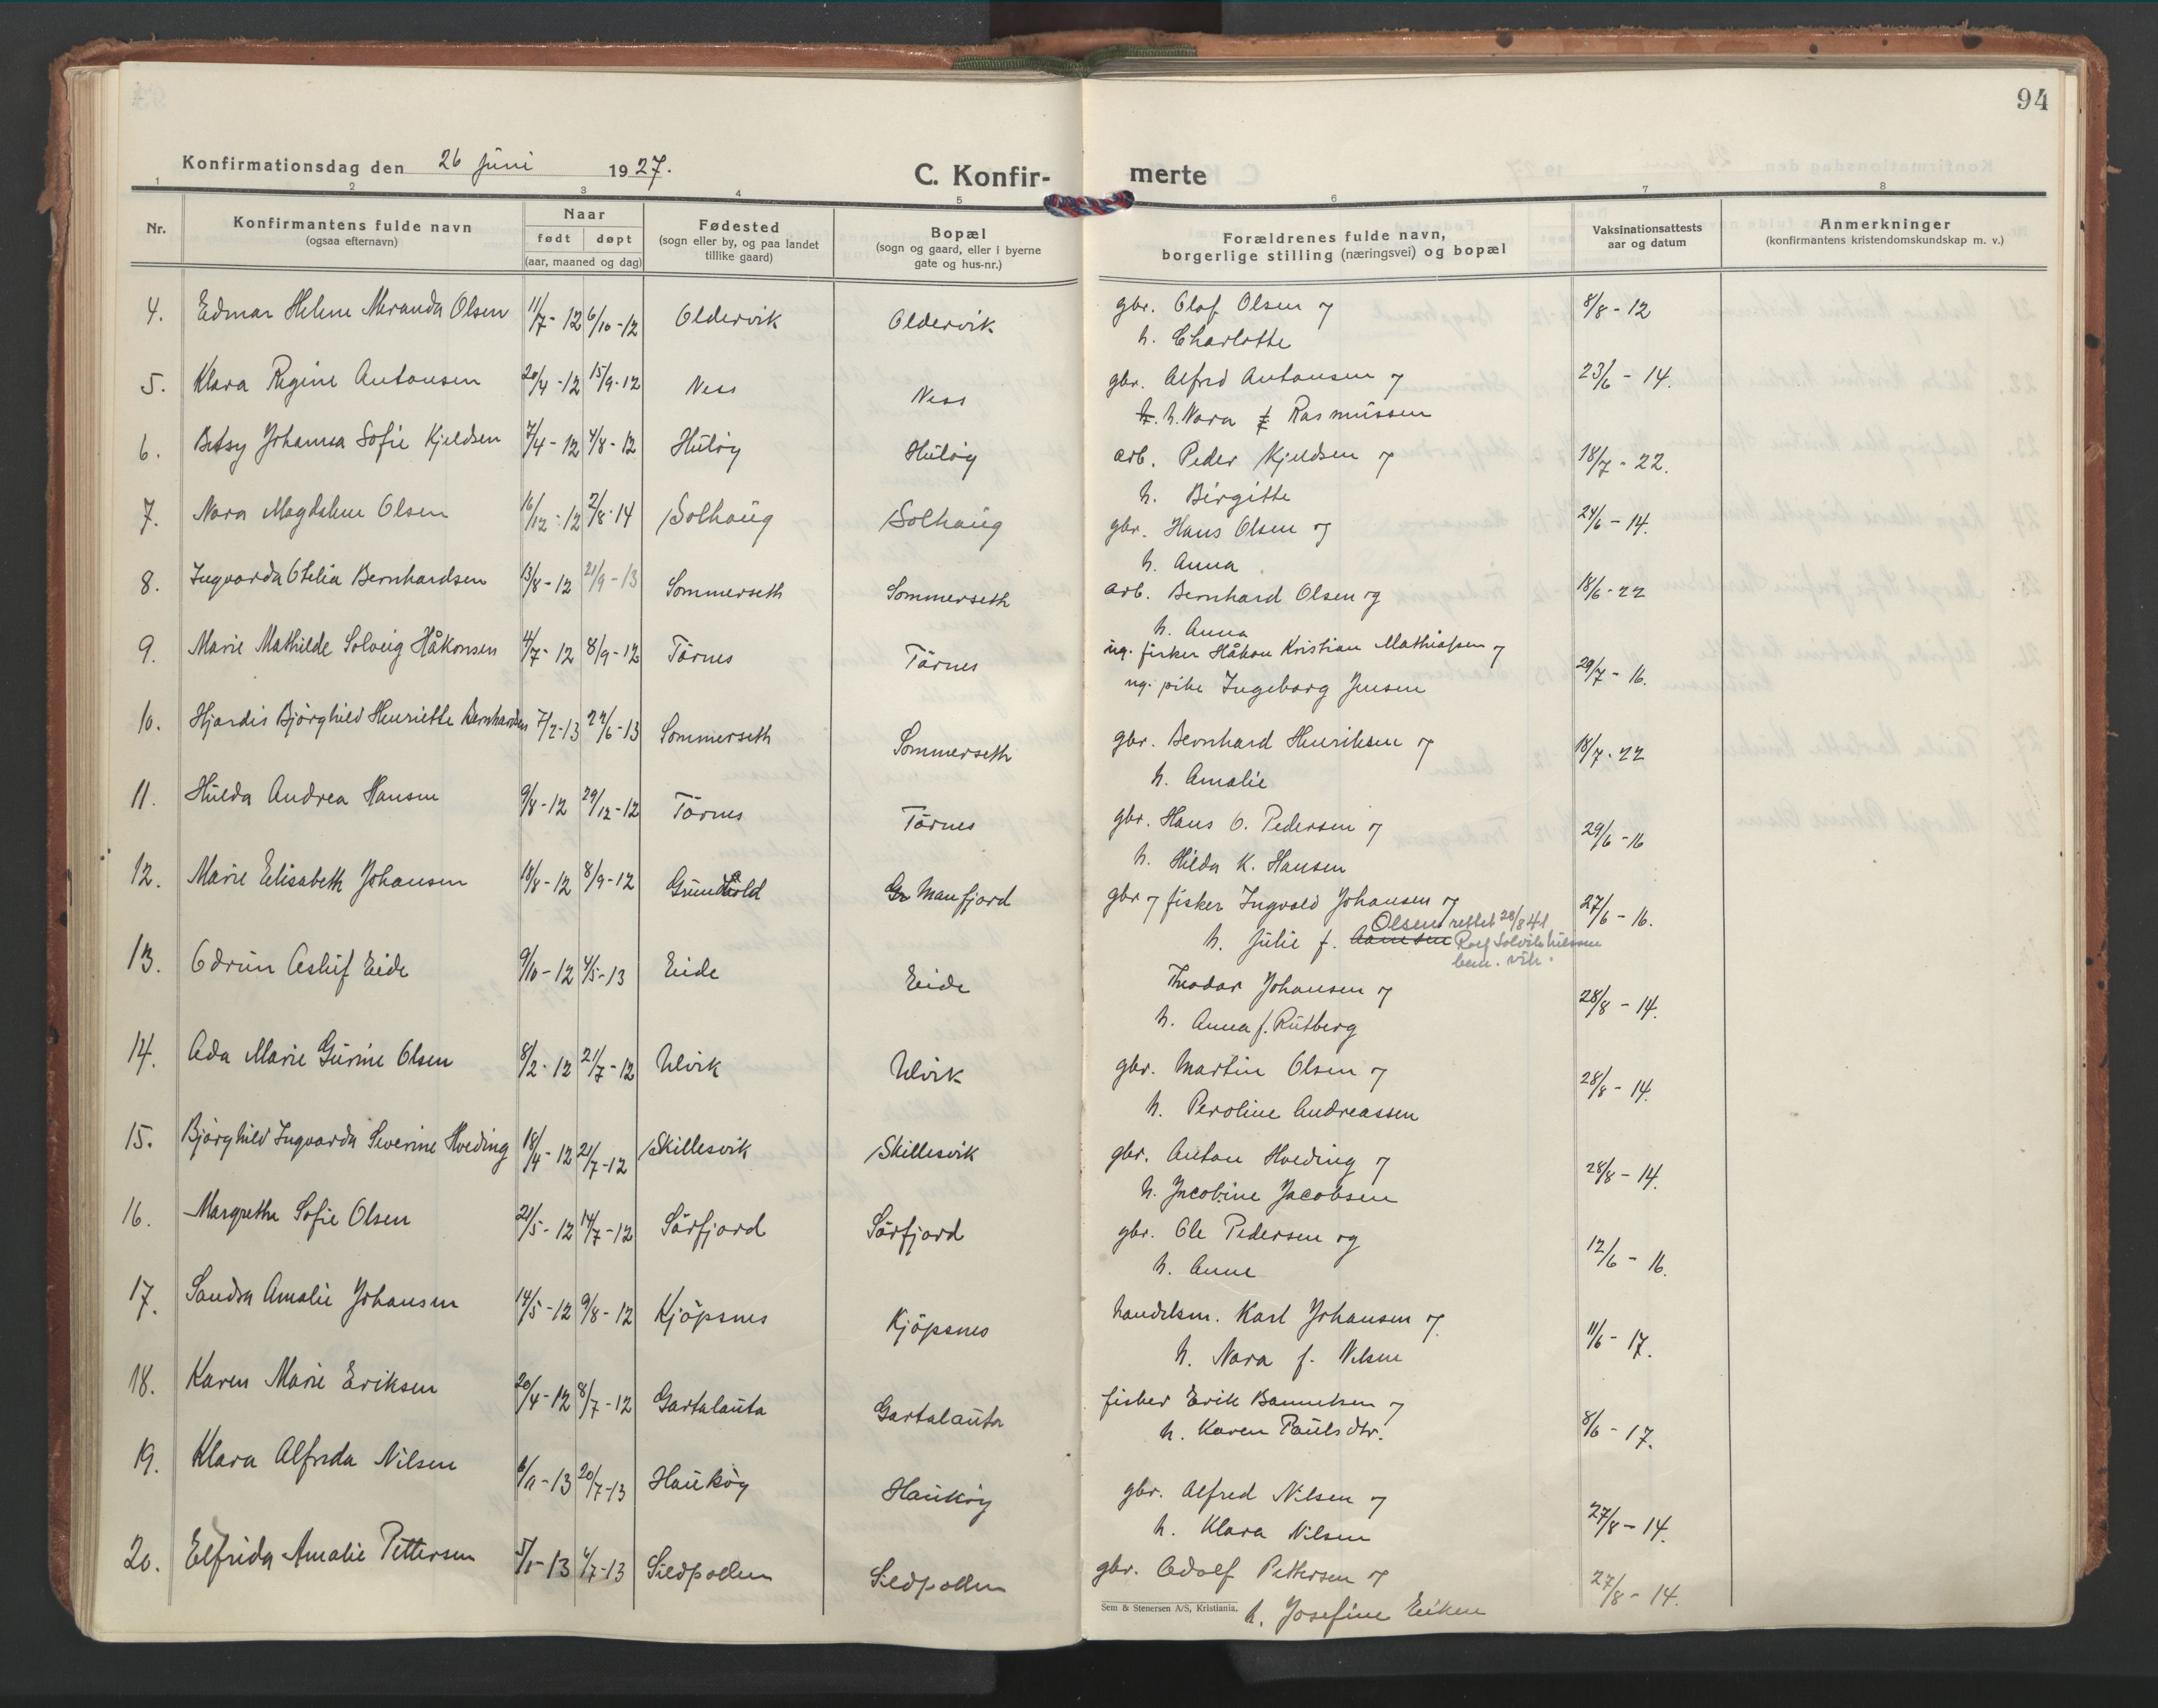 94
Konfirmationsdag den 26 juni 1927.
C. Konfir- merte
1 2 3 4 5 6 7 8
Nr. Konfirmantens fulde navn (ogsaa efternavn) Naar født døpt (aar, maaned og dag) Fødested (sogn eller by, og paa landet tillike gaard) Bopæl (sogn og gaard, eller i byerne gate og hus-nr.) Forældrenes fulde navn, borgerlige stilling (næringsvei) og bopæl Vaksinationsattests aar og datum Anmerkninger (konfirmantens kristendomskundskap m. v.)
4. Edmar Helene Meranda Olsen 11/7-12 6/10-12 Oldervik Oldervik gbr. Olof Olsen og 8/8-12
h. Charlotte
5. Klara Regine Antonsen 20/4-12 15/9-12 Ness Ness gbr. Alfred Antonsen og 23/6-14.
h. h. Nora f Rasmussen
6. Betsy Johanna Sofie Kjeldsen 7/4-12 4/8-12 Huløy Huløy arb. Peder Kjeldsen og 18/7-22.
h. Birgitte
7. Nora Magdalene Olsen 16/12-12 2/8-14 Solhaug Solhaug gbr. Hans Olsen og 24/6-14.
h. Anna
8. Ingvarda Otelia Bernhardsen 13/8-12 21/9-13 Sommerseth Sommerseth arb. Bernhard Olsen og 18/6-22
h. Anna
9. Marie Mathilde Solveig Håkonsen 4/7-12 8/9-12 Törnes Törnes ug. fisker Håkon Kristian Mathiassen og 29/7-16.
ug. pike Ingeborg Jensen
10. Hjørdis Bjørghild Henriette Bernhardsen 7/2-13 22/6-13 Sommerseth Sommerseth gbr. Bernhard Henriksen og 18/7-22
h. Amalie
11. Hulda Andrea Hansen 9/8-12 29/12-12 Törnes Törnes gbr. Hans O. Pedersen og 29/6-16
h. Hilda K. Hansen
12. Marie Elisabeth Johansen 18/8-12 8/9-12 Manfjord gbr og fisker Ingvald Johansen og 27/6-16.
Olsen rettet 28/8 41
h. Julie f. Rolf
13. Odrun Eide 9/10-12 4/5-13 Eide Eide Theodor Johansen og 28/8-14.
h. Anna f. Rutberg
14. Ada Marie Gurine Olsen 8/2-12 21/7-12 Ulvik Ulvik gbr. Martin Olsen og 28/8-14.
h. Peroline Andreassen
15. Bjørghild Ingvarda Severine Hveding 18/4-12 21/7-12 Skillesvik Skillesvik gbr. Anton Hveding og 28/8-14.
h. Jacobine Jacobsen
16. Margrethe Sofie Olsen 21/5-12 14/7-12 Sörfjord Sörfjord gbr. Ole Pedersen og 12/6-16.
h. Anne
17. Sandra Amalie Johansen 14/5-12 9/8-12 Kjöpsnes Kjöpsnes handelsm. Karl Johansen og 11/6-17.
h. Nora f. Nilsen
18. Karen Marie Eriksen 20/4-12 8/7-12 Gartalauta Gartalauta fisker Erik og 8/6-17.
h. Karen Paulsdtr.
19. Klara Alfrida Nilsen 20/7-13 Haukøy Haukøy gbr. Alfred Nilsen og 27/8-14.
h. Klara Nilsen
20. Elfrida Amalie Pettersen 5/1-13 4/7-13 Sildpollen Sildpollen gbr. Adolf Pettersen og 27/8-14.
Sem & Stenersen A/S, Kristiania. h. Josefine